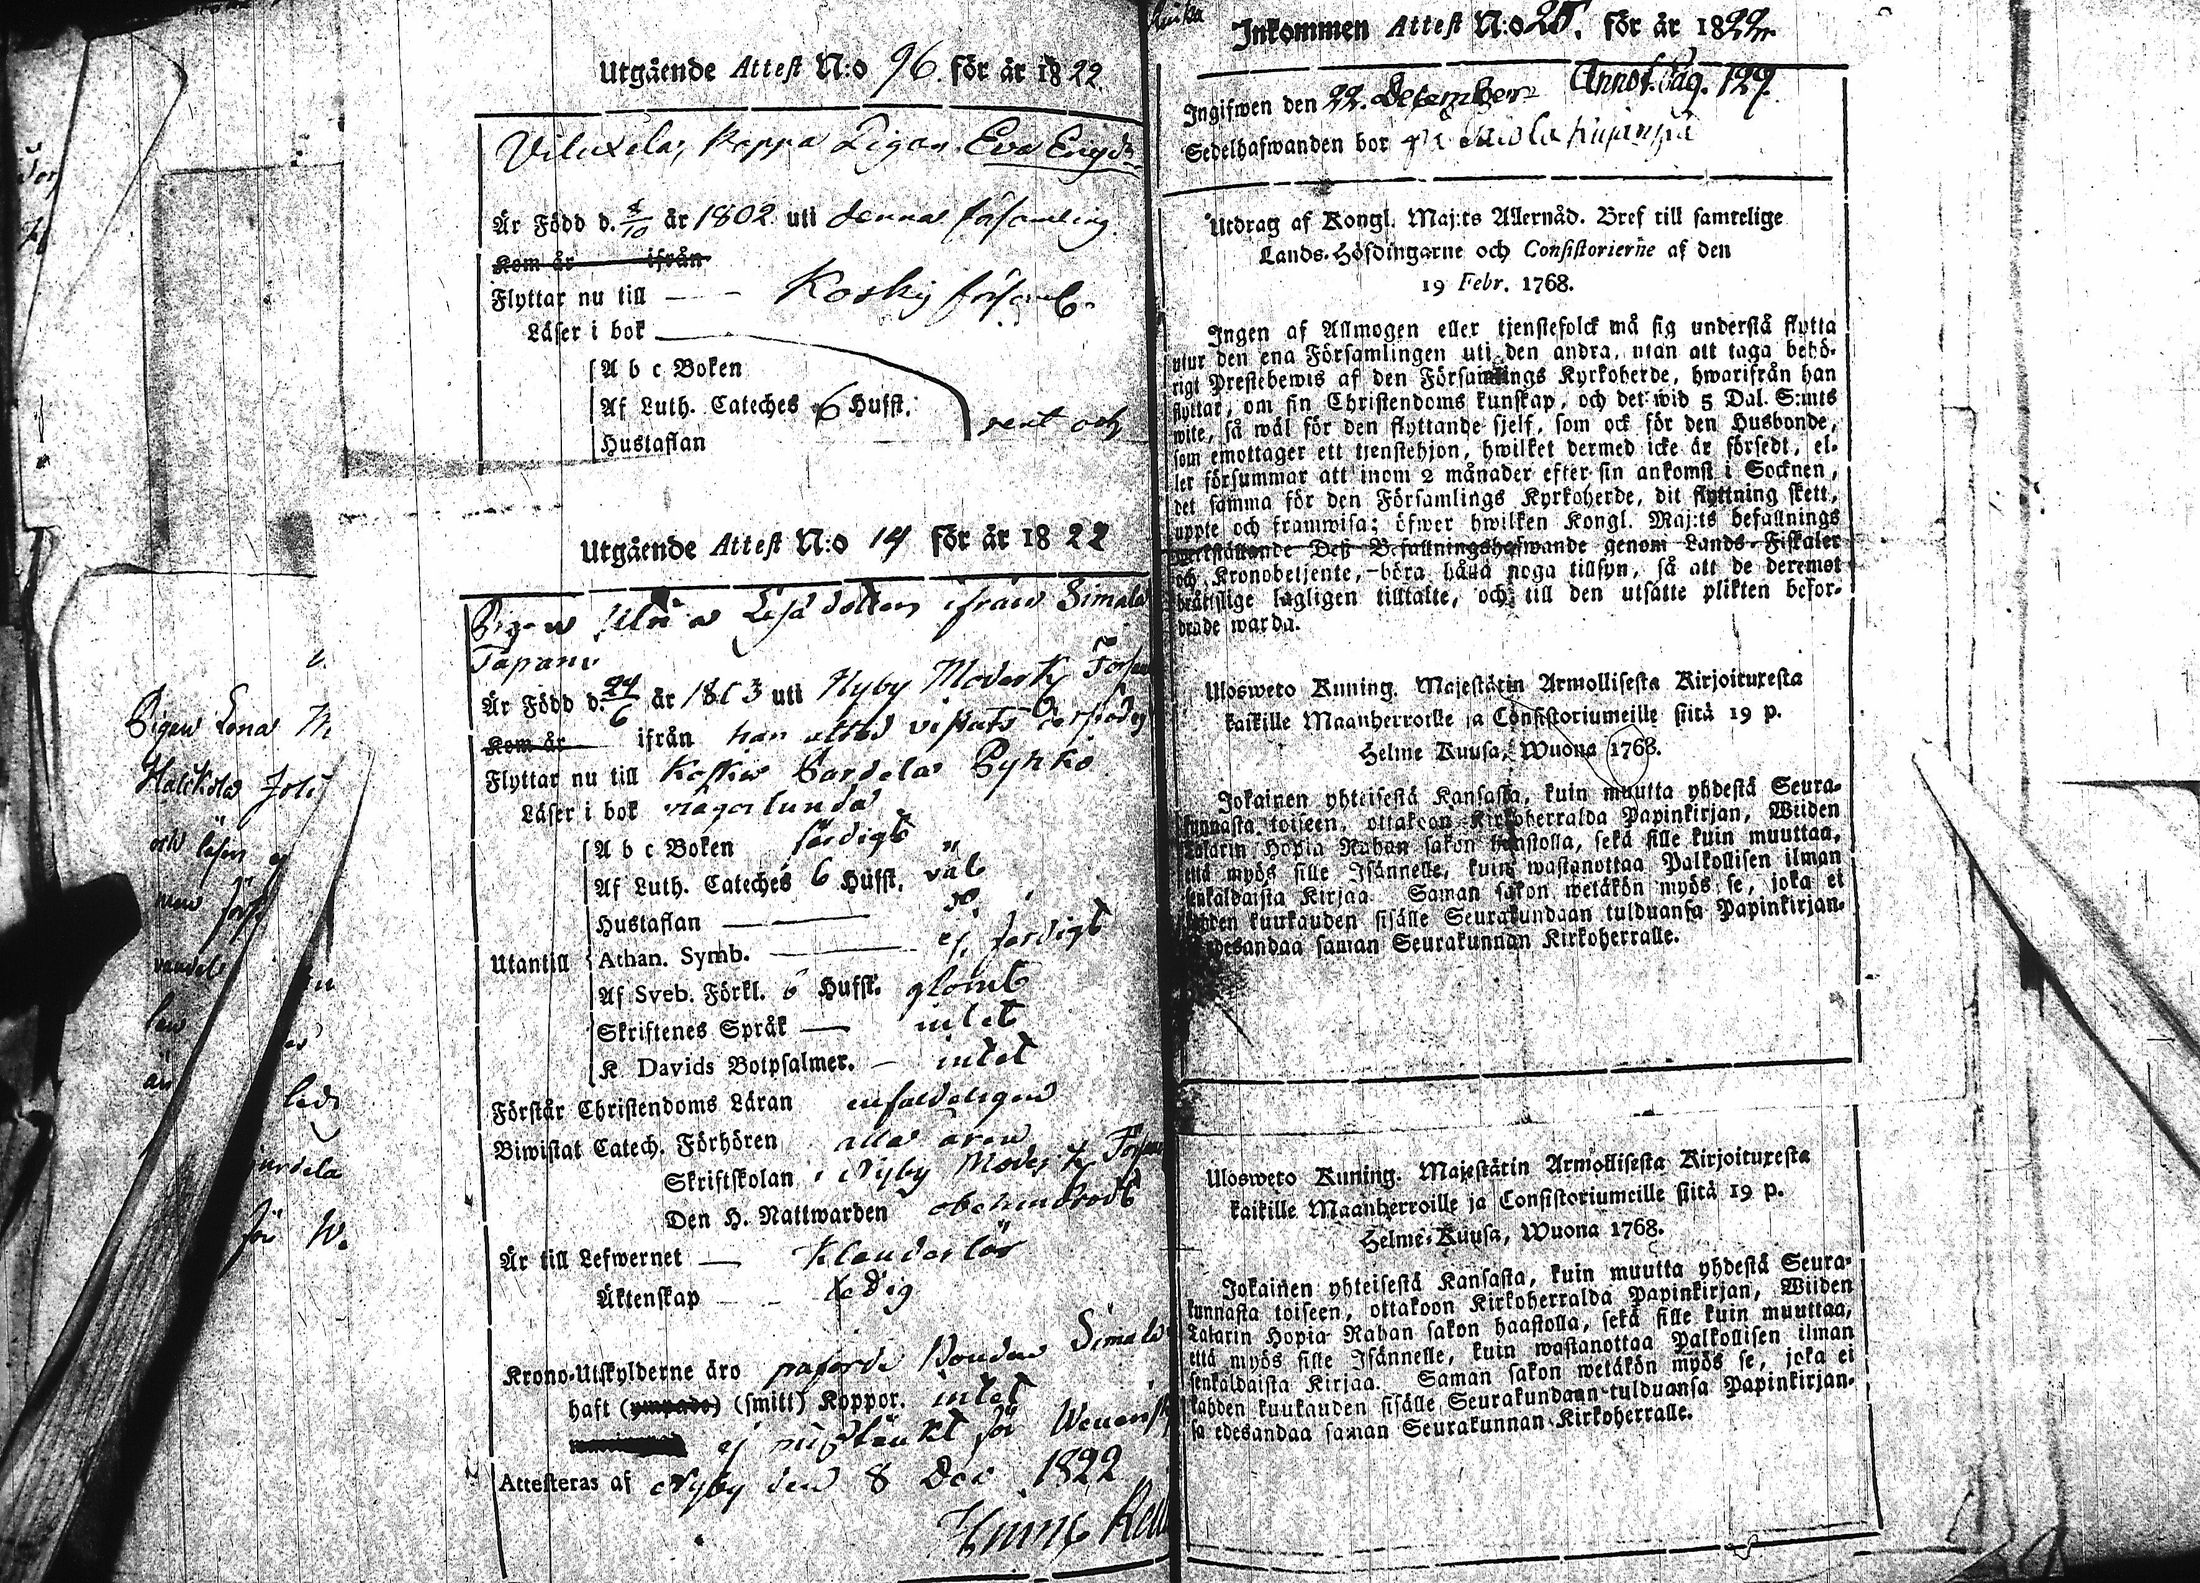 Utgående Attest N:o 96. för år 1822.
Viluxela, Koppa Pigan Eva
Är Född d. 4/10 år 1802 uti denna församling
Kom år ifrån
Flyttar nu till — — Koskis församl.
Läser i bok
A b c Boken
Af Luth. Cateches 6 Hufst.
Hustaflan
rent och
Utgående Attest N:o 14 för år 1822
Pigan Lisa dotter ifrån Simala
Tapani
Är Född d. 24/6 år 1803 uti Nyby Moderky Försam
Kom år ifrån han altid vistats
Flyttar nu till Koskis Sardela Pyhkö
Läser i bok någorlunda
A b c Boken färdigt
Af Luth. Cateches 6 Hufst. väl
Hustaflan —
Utantill
Athan. Symb. — ej färdigt
Af Sveb. Förkl. 6 Hufst. glömt
Skriftenes Språk — intet
K Davids Botpsalmer. — intet
Förstår Christendoms Läran enfaldeligen
Biwistat Catech. Förhören alla åren
Skriftskolan i Nyby Moderk Försam
Den H. Nattwarden obehindradt
Är till Lefwernet — Klanderlös
Äktenskap — — Ledig
Krono-Utskylderne äro påförde Bonden Simala
haft (ympade) (smitt) Koppor. intet
ej misstänkt för
Attesteras af Nyby den 8 Dec 1822
Pigan Lena
Halikola
och läser ej
Inkommen Attest N:o 25. för år 1822.
Ingifwen den 22. December Annot. Pag. 127.
Sedelhafwanden bor
Utdrag af Kongl. Maj:ts Allernåd. Bref till samtelige
Lands-Höfdingarne och Consistorierne af den
19 Febr. 1768.
Ingen af Allmogen eller tjenstefolck må sig understå flytta
utur den ena Församlingen uti den andra, utan att taga behö-
rigt Prestebewis af den Församlings Kyrkoherde, hwarifrån han
flyttar, om sin Christendoms kunskap, och det wid 5 Dal. S:mts
wite, så wäl för den flyttande sjelf, som ock för den Husbonde,
som emottager ett tjenstehjon, hwilket dermed icke är försedt, el-
ler försummar att inom 2 månader efter sin ankomst i Socknen,
det samma för den Församlings Kyrkoherde, dit flyttning skett,
uppte och framwisa; öfwer hwilken Kongl. Maj:ts befallnings
werkställande Deß Befallningshafwande genom Lands-Fiskaler
och Kronobetjente, böra hålla noga tillsyn, så att de deremot
bråttslige lagligen tilltalte, och till den utsatte plikten befor-
drade warda.
Ulosweto Kuning. Majestätin Armollisesta Kirjoituxesta
kaikille Maanherroille ja Consistoriumeille siitä 19 p.
Helme Kuusa, Wuona 1768.
Jokainen yhteisestä Kansasta, kuin muutta yhdestä Seura-
kunnasta toiseen, ottakoon Kirkoherralda Papinkirjan, Wiiden
Talarin Hopia Rahan sakon haastolla, sekä sille kuin muuttaa,
että myös sille Isännelle, kuin wastanottaa Palkollisen ilman
senkaldaista Kirjaa. Saman sakon wetäkön myös se, joka ei
kahden kuukauden sisälle Seurakundaan tulduansa Papinkirjan-
sa edesandaa saman Seurakunnan Kirkoherralle.
Ulosweto Kuning. Majestätin Armollisesta Kirjoituxesta
kaikille Maanherroille ja Consistoriumeille siitä 19 p.
Helme-Kuusa, Wuona 1768.
Jokainen yhteisestä Kansasta, kuin muutta yhdestä Seura-
kunnasta toiseen, ottakoon Kirkoherralda Papinkirjan, Wiiden
Talarin Hopia Rahan sakon haastolla, sekä sille kuin muuttaa,
että myös sille Isännelle, kuin wastanottaa Palkollisen ilman
senkaldaista Kirjaa. Saman sakon wetäkön myös se, joka ei
kahden kuukauden sisälle Seurakundaan tulduansa Papinkirjan-
sa edesandaa saman Seurakunnan Kirkoherralle.